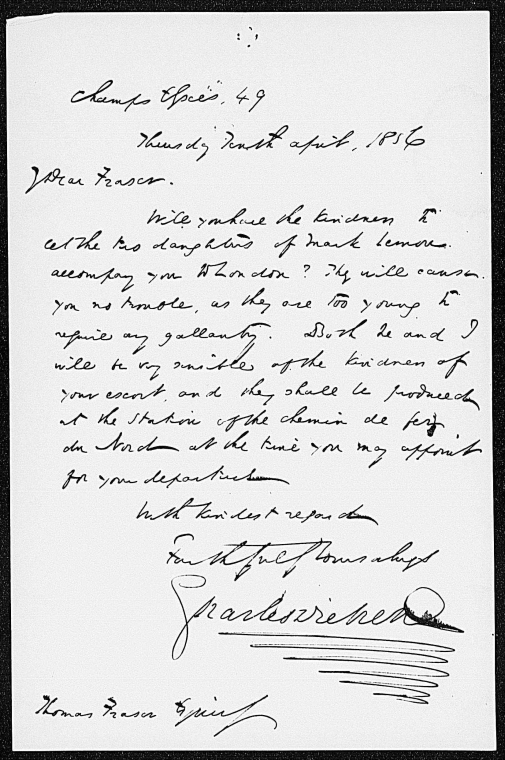 Champs Elysées, 49
Thursday Tenth April, 1856
My Dear Fraser.
Will you have the kindness to
let the two daughters of Mark Lemon
accompany you to London? They will cause
you no trouble, as they are too young to
require any gallantry. Both he and I
will be very sensible of the kindness of
your escort, and they shall be produced
at the Station of the chemin de fer
du Nord at the time you may appoint
for your departure
With kindest regard
Faithfully Yours always
Charles Dickens
Thomas Fraser Esquire